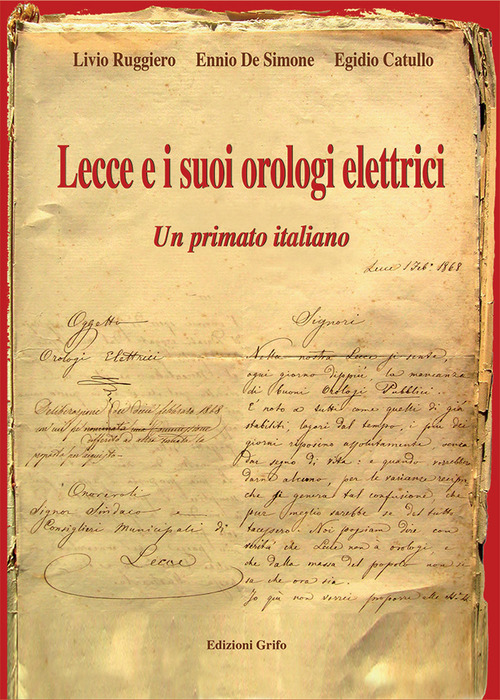 Livio Ruggiero Ennio De Simone Egidio Catullo
Lecce e i suoi orologi elettrici
Un primato italiano
Lecce 1 Feb. 1868
Oggetto
Orologi Elettrici
Deliberazione dei dieci febbraio 1868
Onorevoli
Signor Sindaco e
Consiglieri Municipali di
Lecce
Signori
Nella nostra Lecce si sente,
ogni giorno dippiù la mancanza
di buoni Orologi Pubblici.
È noto a tutti come quelle di già
stabiliti, logori dal tempo, i più dei
giorni riposino assolutamente, senza
dar segno di vita: e quando vorrebbero
darne alcuno, per le variance
che si genera tal confusione che
pur meglio sarebbe se del tutto
tacessero. Noi possiam dire con
verità che Lecce non à orologi e
che dalla massa del popolo non si
sa che ora sia.
Io qui non vorrei proporre alle
Edizioni Grifo